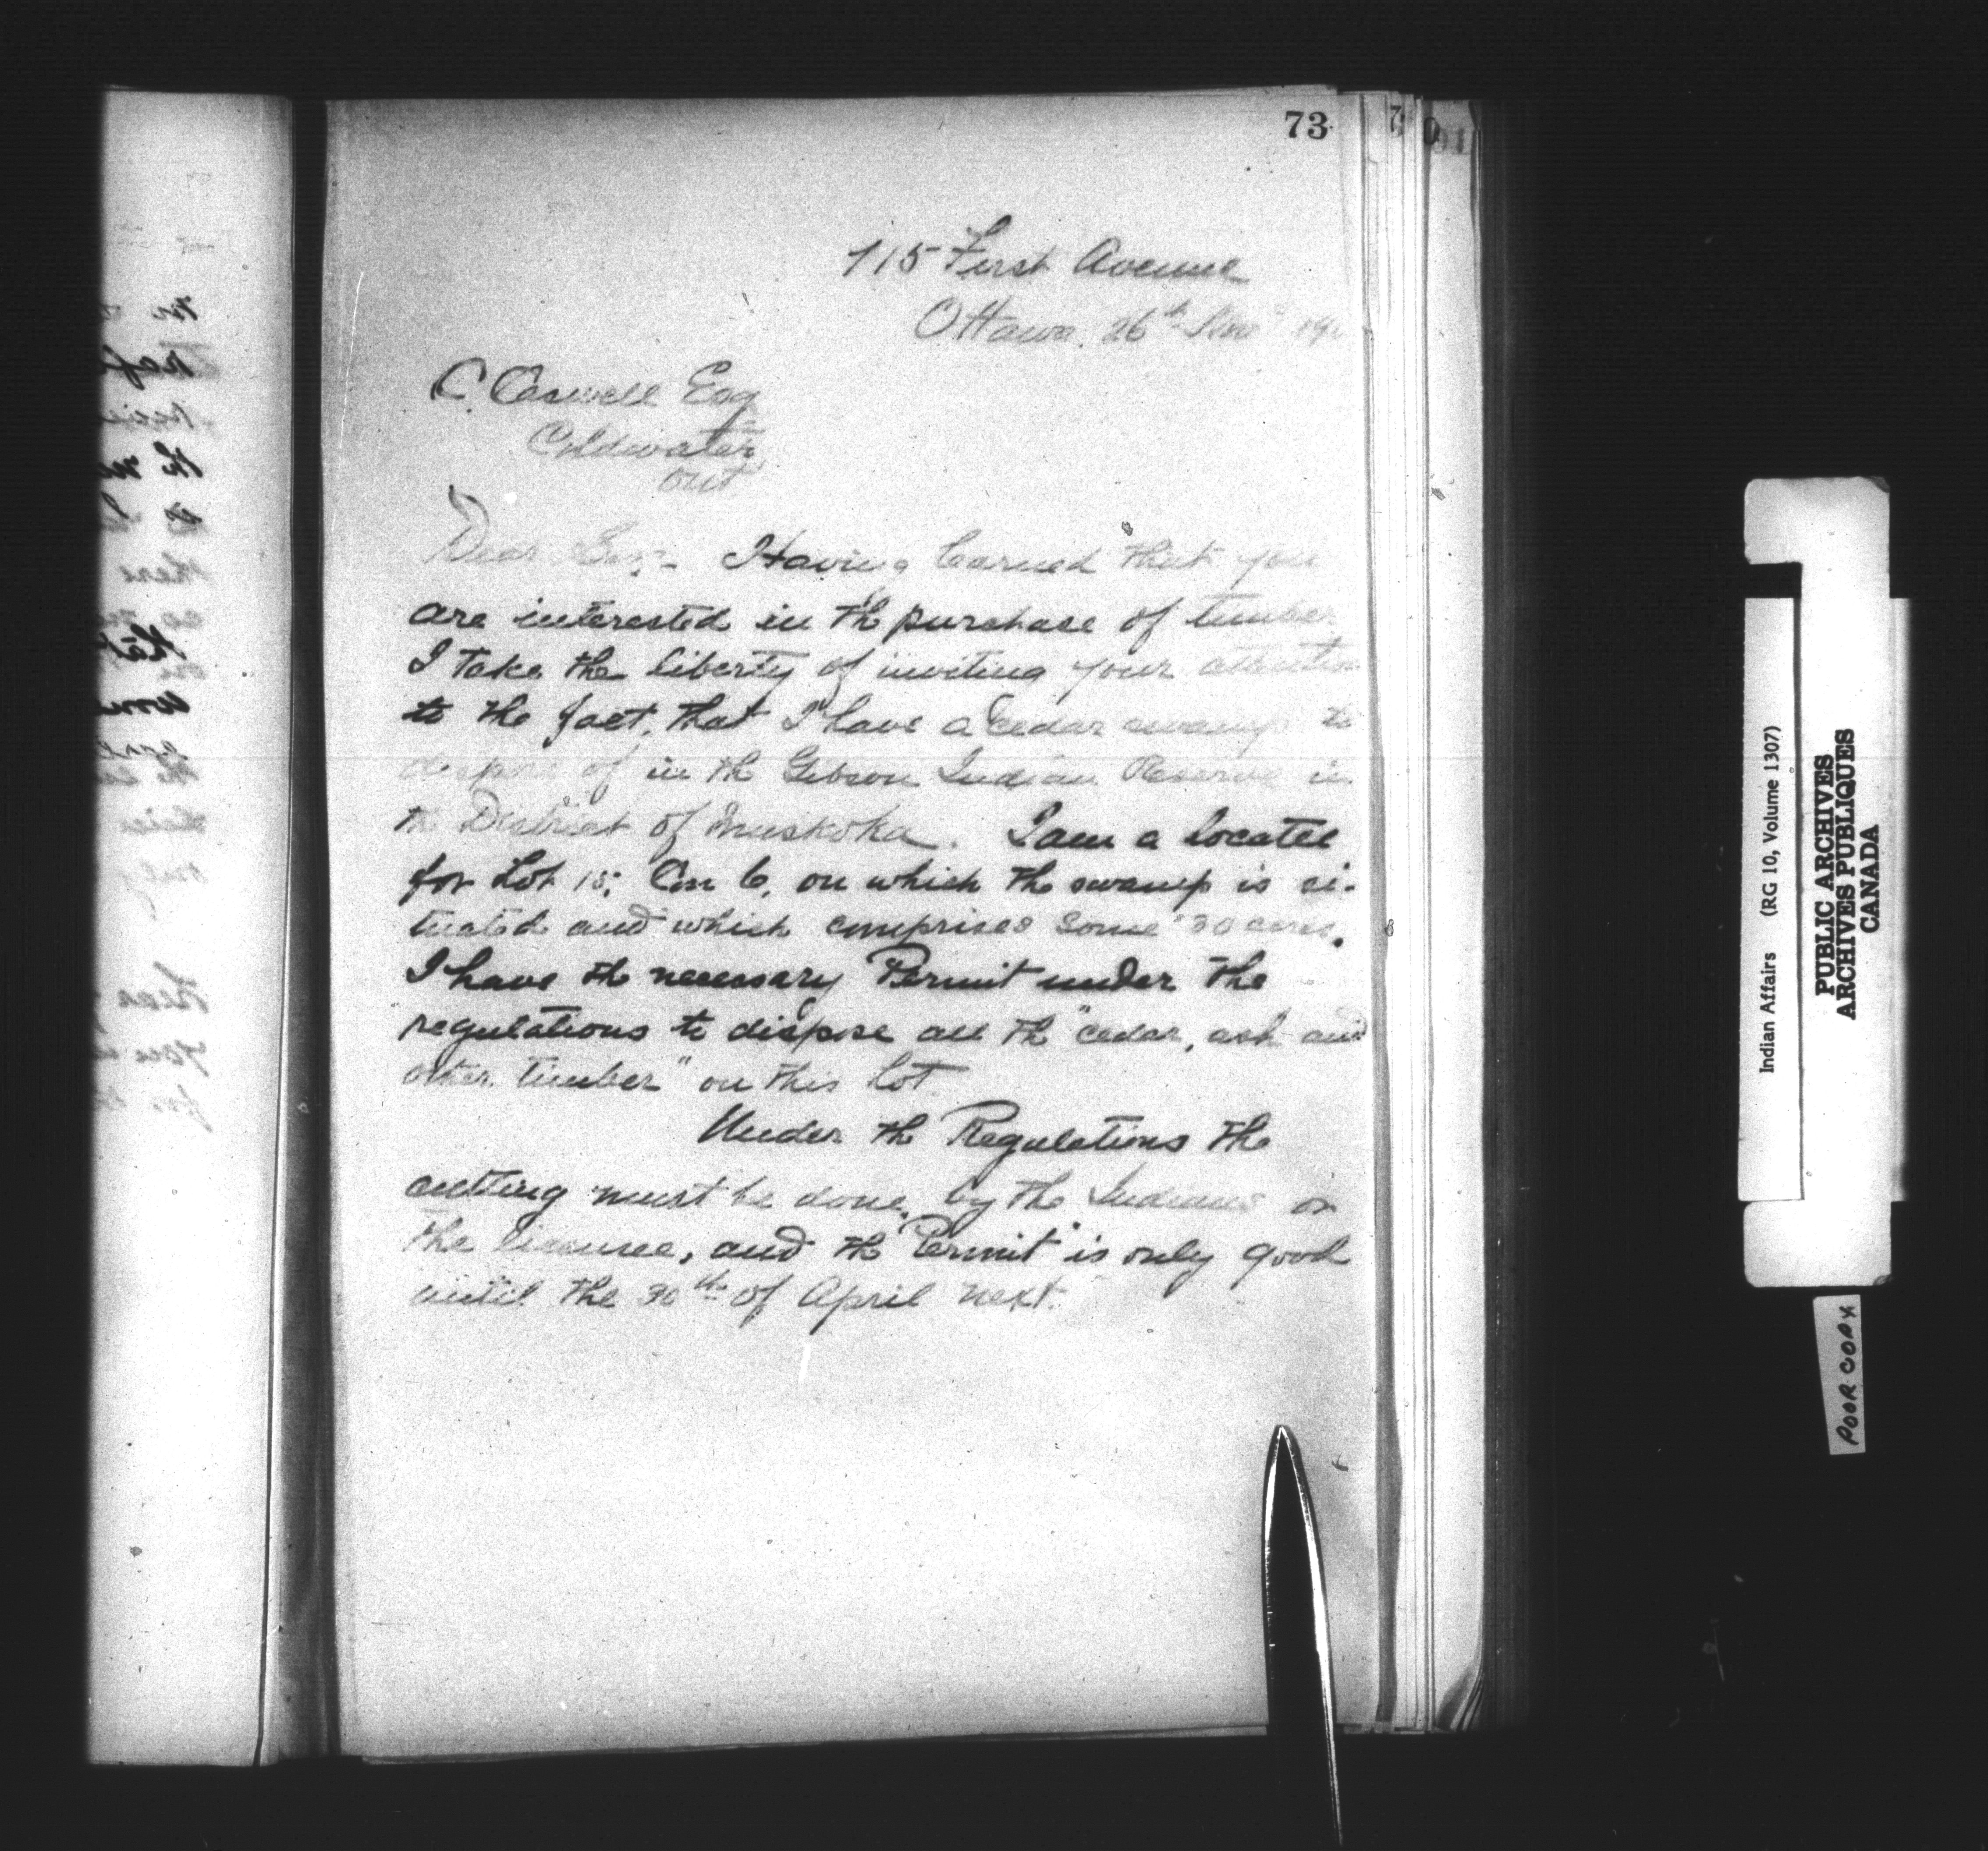 73
115 First Avenue
Ottawa. 26th Nov 190
C. Caswell Esq
Coldwater
Ont
Dear Sir:- Having learned that you
are interested in th purchase of timber
I take the liberty of inviting your attention
to the fact, that I have a cedar swamp to
dispose of in th Gibson Indian Reserve in
th District of Muskoka. I am a locatee
for Lot 15, Con 6, on which the swamp is si-
tuated and which comprises some 30 acres.
I have th necessary Permit under the
regulations to dispose all th "cedar, ash and
other timber" on this lot.
Under th Regulations the
cutting must be done by the Indians or
the licensee, and th "Permit" is only good
until the 30th of April next.
Indian Affairs (RG 10, Volume 1307)
PUBLIC ARCHIVES
ARCHIVES PUBLIQUES
CANADA
POOR COPY